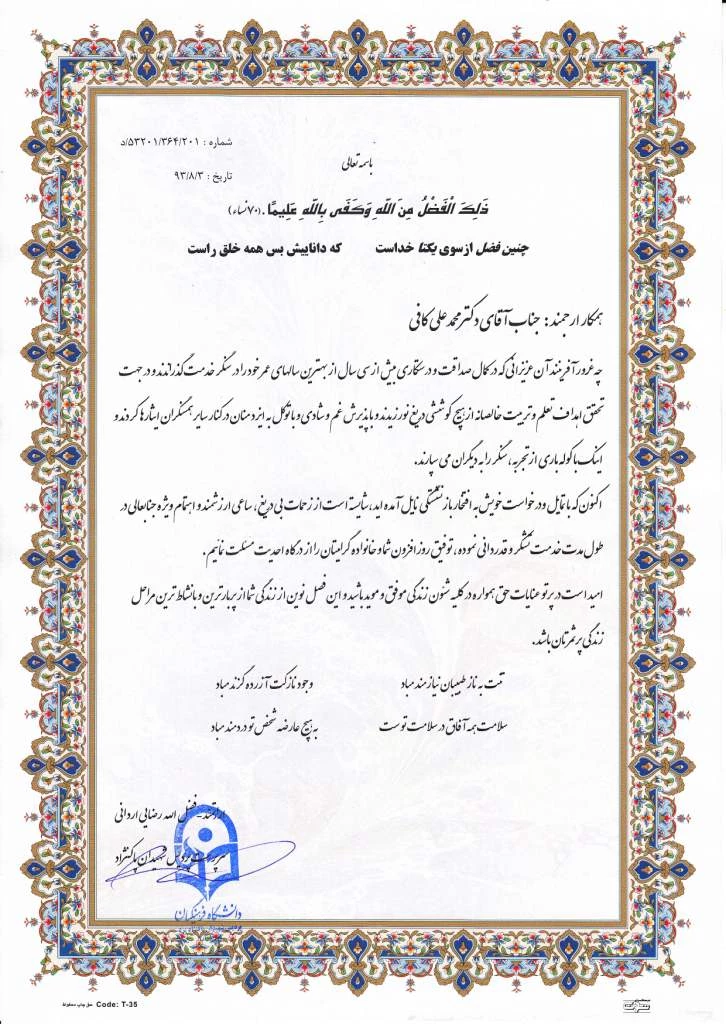 شماره : ۵۳۲۰۱/۳۶۴/۲۰۱/د
باسمه تعالی
تاریخ : ۹۳/۸/۳
ذَلِكَ الْفَضْلُ مِنَ اللّهِ وَكَفَى بِاللّهِ عَلِيمًا .(۷۰نساء)
چنین فضل ازسوی یکتا خداست که داناییش بس همه خلق راست
همکار ارجمند: جناب آقای دکتر محمد علی کافی
چه غرور آفرینند آن عزیزانی که در کمال صداقت و درستکاری بیش از سی سال از بهترین سالهای عمر خود را در سنگر خدمت گذراندند و در جهت
تحقق اهداف تعلیم و تربیت خالصانه از هیچ کوششی دریغ نورزیدند و با پذیرش غم و شادی و با توکل به ایزد منان در کنار سایر همسنگران ایثارها کردند و
اینک با کوله باری از تجربه، سنگر را به دیگران می سپارند.
اکنون که با تمایل و درخواست خویش به افتخار بازنشستگی نایل آمده اید، شایسته است از زحمات بی دریغ، مساعی ارزشمند و اهتمام ویژه جنابعالی در
طول مدت خدمت تشکر و قدردانی نموده، توفیق روز افزون شما و خانواده گرامیتان را از درگاه احدیت مسئلت نمائیم.
امید است در پرتو عنایات حق همواره در کلیه شئون زندگی موفق و موید باشید و این فصل نوین از زندگی شما از پربارترین و با نشاط ترین مراحل
زندگی پرثمرتان باشد.
تنت به ناز طبیبان نیازمند مباد وجود نازکت آزرده گزند مباد
سلامت همه آفاق در سلامت توست به هیچ عارضه شخص تو دردمند مباد
ارادتمند- فضل الله رضایی اردانی
سرپرست پردیس شهیدان پاکنژاد
دانشگاه فرهنگیان
حق چاپ محفوظ Code: T-35